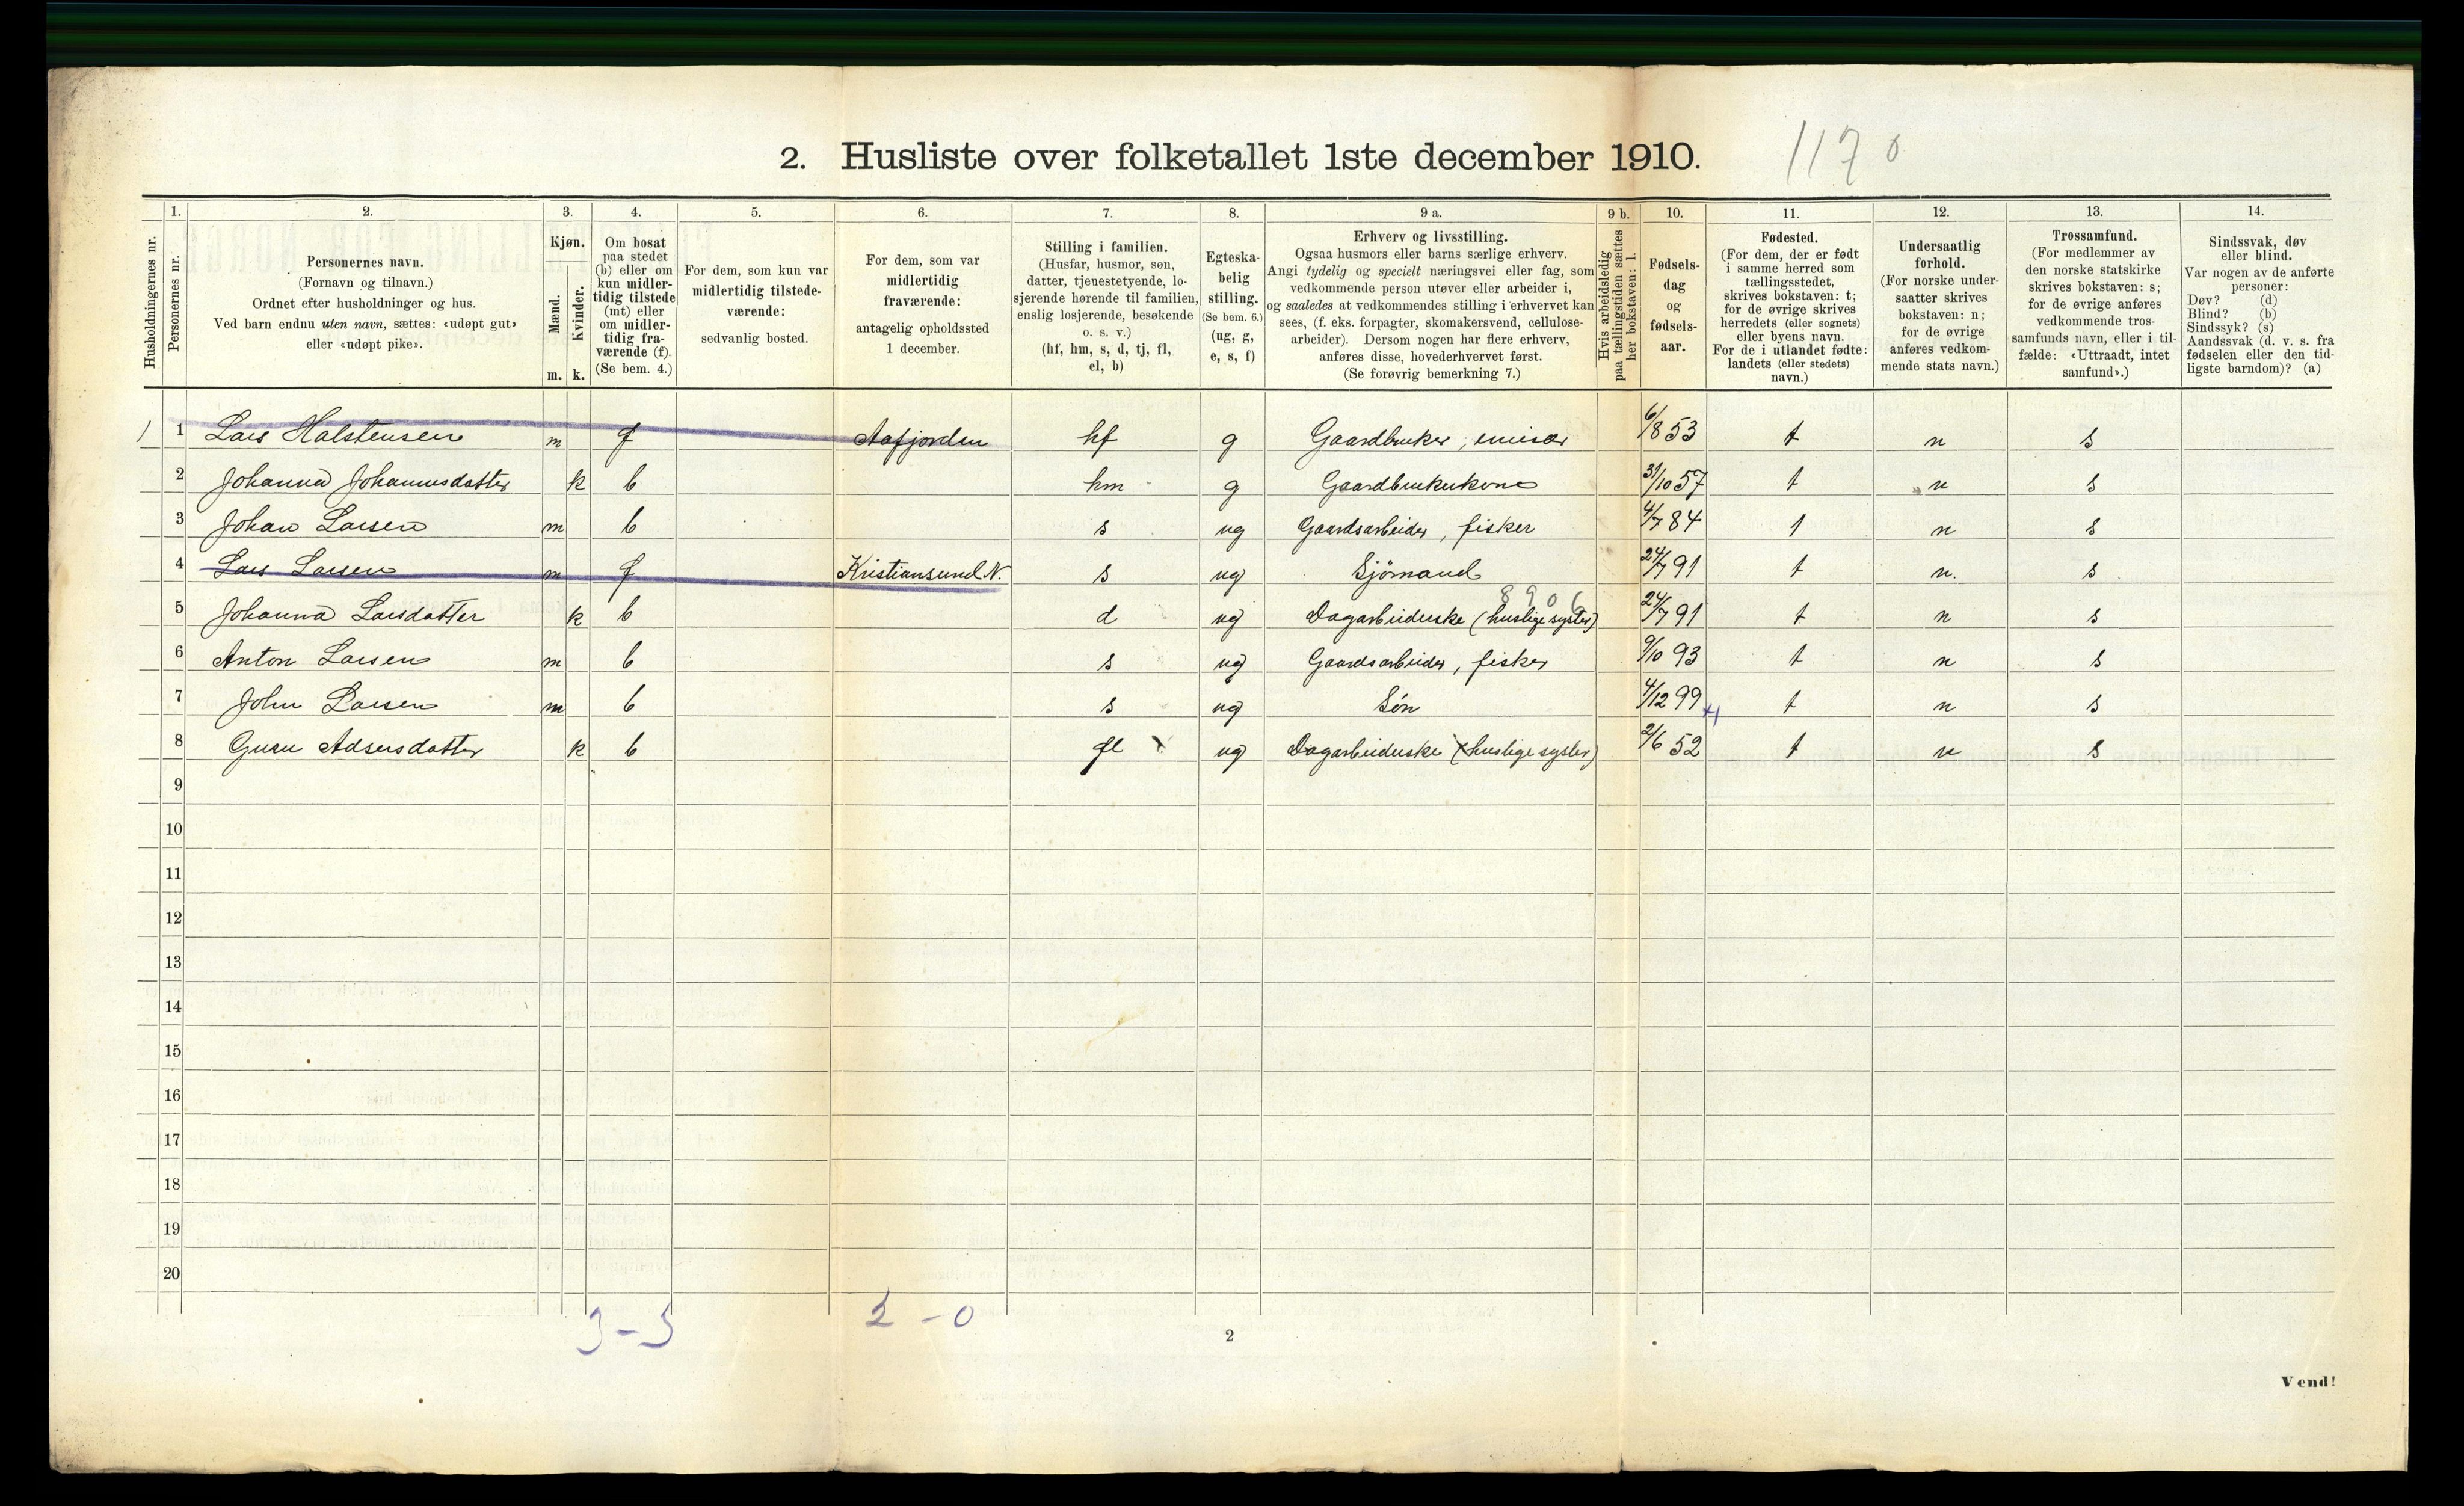 2. Husliste over folketallet 1ste december 1910.
1170
Husholdningernes nr.
1.
Personernes nr.
2.
Personernes navn.
(Fornavn og tilnavn.)
Ordnet efter husholdninger og hus.
Ved barn endnu uten navn, sættes: «udøpt gut»
eller «udøpt pike».
3.
Kjøn.
Mænd.
Kvinder.
m. k.
4.
Om bosat
paa stedet
(b) eller om
kun midler-
tidig tilstede
(mt) eller
om midler-
tidig fra-
værende (f).
(Se bem. 4.)
5.
For dem, som kun var
midlertidig tilstede-
værende:
sedvanlig bosted.
6.
For dem, som var
midlertidig
fraværende:
antagelig opholdssted
1 december.
7.
Stilling i familien.
(Husfar, husmor, søn,
datter, tjenestetyende, lo-
sjerende hørende til familien,
enslig losjerende, besøkende
o. s. v.)
(hf, hm, s, d, tj, fl,
el, b)
8.
Egteska-
belig
stilling.
(Se bem. 6.)
(ug, g,
e, s, f)
9 a.
Erhverv og livsstilling.
Ogsaa husmors eller barns særlige erhverv.
Angi tydelig og specielt næringsvei eller fag, som
vedkommende person utøver eller arbeider i,
og saaledes at vedkommendes stilling i erhvervet kan
sees, (f. eks. forpagter, skomakersvend, cellulose-
arbeider). Dersom nogen har flere erhverv,
anføres disse, hovederhvervet først.
(Se forøvrig bemerkning 7.)
9 b.
Hvis arbeidsledig
paa tællingstiden sættes
her bokstaven: l.
10.
Fødsels-
dag
og
fødsels-
aar.
11.
Fødested.
(For dem, der er født
i samme herred som
tællingsstedet,
skrives bokstaven: t;
for de øvrige skrives
herredets (eller sognets)
eller byens navn.
For de i utlandet fødte:
landets (eller stedets)
navn.)
12.
Undersaatlig
forhold.
(For norske under-
saatter skrives
bokstaven: n;
for de øvrige
anføres vedkom-
mende stats navn.)
13.
Trossamfund.
(For medlemmer av
den norske statskirke
skrives bokstaven: s;
for de øvrige anføres
vedkommende tros-
samfunds navn, eller i til-
fælde: «Uttraadt, intet
samfund».)
14.
Sindssvak, døv
eller blind.
Var nogen av de anførte
personer:
Døv? (d)
Blind? (b)
Sindssyk? (s)
Aandssvak (d. v. s. fra
fødselen eller den tid-
ligste barndom)? (a)
1 1 Lars Halstensen m f Aafjorden hf g Gaardbruker, emisær 6/8 53 t n s
2 Johanna Johannesdatter k b hm g Gaardbrukerkone 31/10 57 t n s
3 Johan Larsen m b s ug Gaardsarbeider, fisker 4/7 84 t n s
4 Lars Larsen m f Kristiansund N. s ug Sjømand 24/7 91 t n. s
8906
5 Johanna Larsdatter k b d ug Dagarbeiderske (huslige sysler) 24/7 91 t n s
6 Anton Larsen m b s ug Gaardsarbeider, fisker 9/10 93 t n s
7 John Larsen m b s ug Søn 4/12 99 t n s
8 Guru Adsersdatter k b fl ug Dagarbeiderske (huslige sysler) 2/6 52 t n s
9
10
11
12
13
14
15
16
17
18
19
20
3-3
2-0
2
Vend!